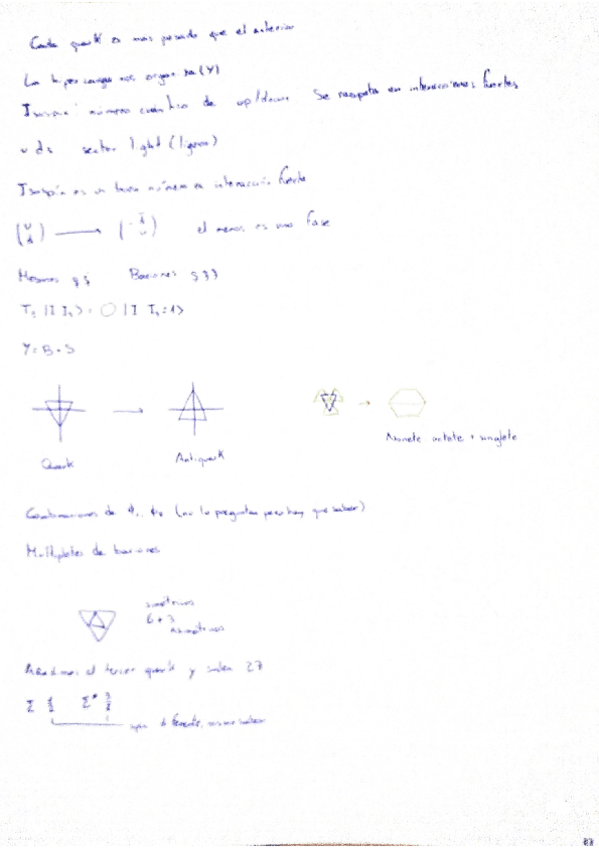 Cada quark es mas pesado que el anterior
La hipercarga nos organiza (Y)
Isospin: número cuántico de up/down. Se respeta en interacciones fuertes
u d s sector light (ligeros)
Isospin es un buen número en interacción fuerte
(u d) → (-d̄ ū) el menos es una fase
Mesones q q̄ Bariones q q q
|I I₃> = |I I₃=1>
Y = B + S
Quark
Antiquark
Nonete: octete + singlete
Combinaciones de (no lo preguntan pero hay que saber)
Multipletes de bariones
simétricos
6 + 3
Añadimos el tercer quark y salen 27
Σ 1/2 Σ* 3/2
spin diferente, mismo